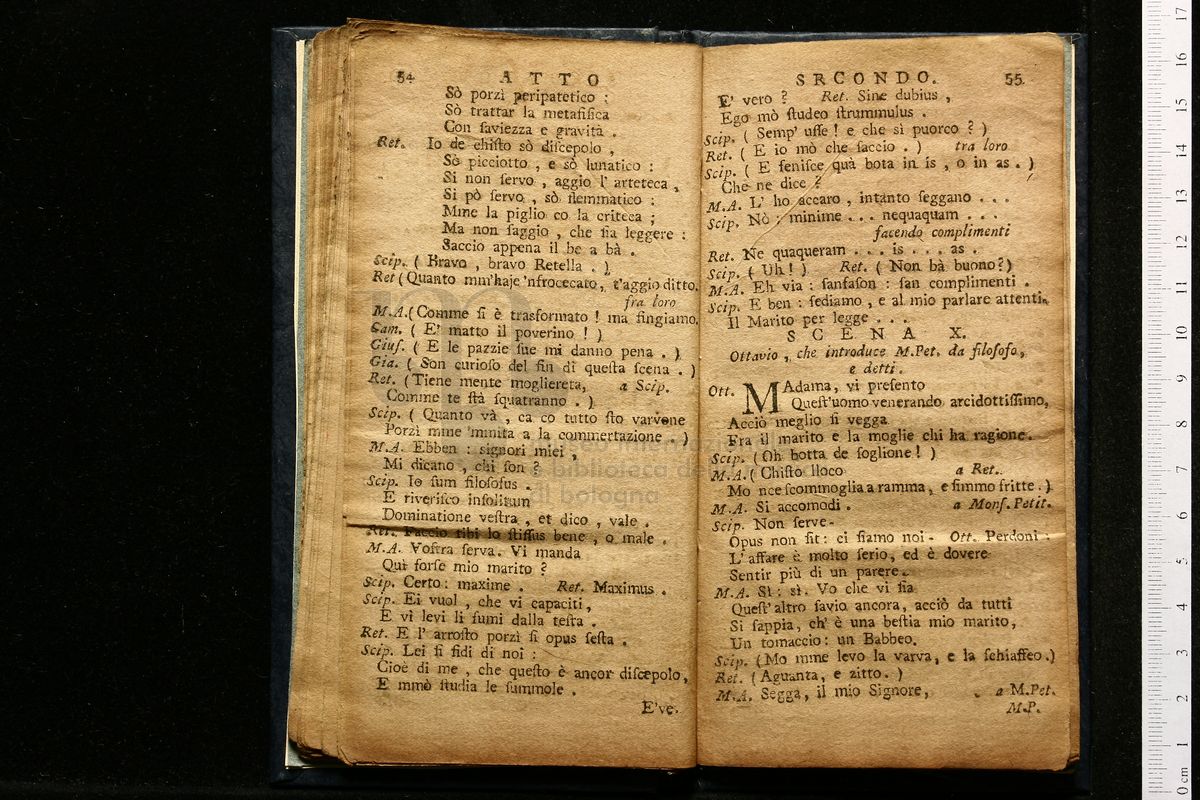 54 ATTO
Sò porzì peripatetico :
Sò trattar la metafisica
Con saviezza e gravità .
Ret. Io de chisto sò discepolo ,
Sò picciotto , e sò lunatico :
Si non servo , aggio l' arteteca ,
Si pò servo , sò flemmatico :
Mme la piglio co la criteca ;
Ma non saggio , che sia leggere :
Saccio appena il be a bà .
Scip. ( Bravo , bravo Retella . )
Ret (Quanto mm'haje 'nfrocecato, t'aggio ditto.
fra loro
M.A.(Comme si è trasformato ! ma fingiamo.
Cam. ( E' matto il poverino ! )
Gius. ( E le pazzie sue mi danno pena . )
Gia. ( Son curioso del fin di questa scena . )
Ret. (Tiene mente mogliereta, a Scip.
Comme te stà squatranno . )
Scip. ( Quanto và , ca co tutto sto varvone
Porzì mme 'mmita a la commertazione . )
M.A. Ebben : signori miei ,
Mi dicano , chi son ?
Scip. Io sum filosofus .
E riverisco insolitum
Dominatione vestra , et dico , vale .
Ret. Faccio tibi lo stissus bene , o male .
M.A. Vostra serva. Vi manda
Quì forse mio marito ?
Scip. Certo : maxime . Ret. Maximus .
Scip. Ei vuol , che vi capaciti,
E vi levi li fumi dalla testa .
Ret. E l' arrosto porzì si opus festa .
Scip. Lei si fidi di noi :
Cioè di me , che questo è ancor discepolo,
E mmò studia le summole .
E've-
SRCONDO. 55
E' vero ? Ret. Sine dubius ,
Ego mò studeo strummulus .
Scip. ( Semp' usse ! e che sì puorco ? )
Ret. ( E io mò che faccio . ) tra loro
Scip. ( E fenisce quà bota in is , o in as . )
Che ne dice ?
M.A. L' ho accaro , intanto seggano . . .
Scip. Nò : minime . . . nequaquam . . .
facendo complimenti
Ret. Ne quaqueram . . . is . . . as .
Scip. ( Uh ! ) Ret. ( Non bà buono?)
M.A. Eh via : sanfason : san complimenti .
Scip. E ben : sediamo , e al mio parlare attenti.
Il Marito per legge . . .
SCENA X.
Ottavio , che introduce M.Pet. da filosofo,
e detti.
Ott. MAdama, vi presento
Quest'uomo venerando arcidottissimo,
Acciò meglio si vegga
Fra il marito e la moglie chi ha ragione.
Scip. (Oh botta de soglione ! )
M.A. ( Chisto lloco a Ret.
Mo nce scommoglia a ramma, e simmo fritte . )
M.A. Si accomodi . a Mons. Petit.
Scip. Non serve-
Opus non sit : ci siamo noi - Ott. Perdoni :
L' affare è molto serio, ed è dovere
Sentir più di un parere.
M.A. Sì : sì. Vo che vi sia
Quest'altro savio ancora, acciò da tutti
Si sappia, ch' è una bestia mio marito,
Un tomaccio : un Babbeo.
Scip. (Mo mme levo la varva, e la schiaffeo.)
Ret. (Aguanta, e zitto. )
M.A. Segga, il mio Signore, a M.Pet.
M.P.